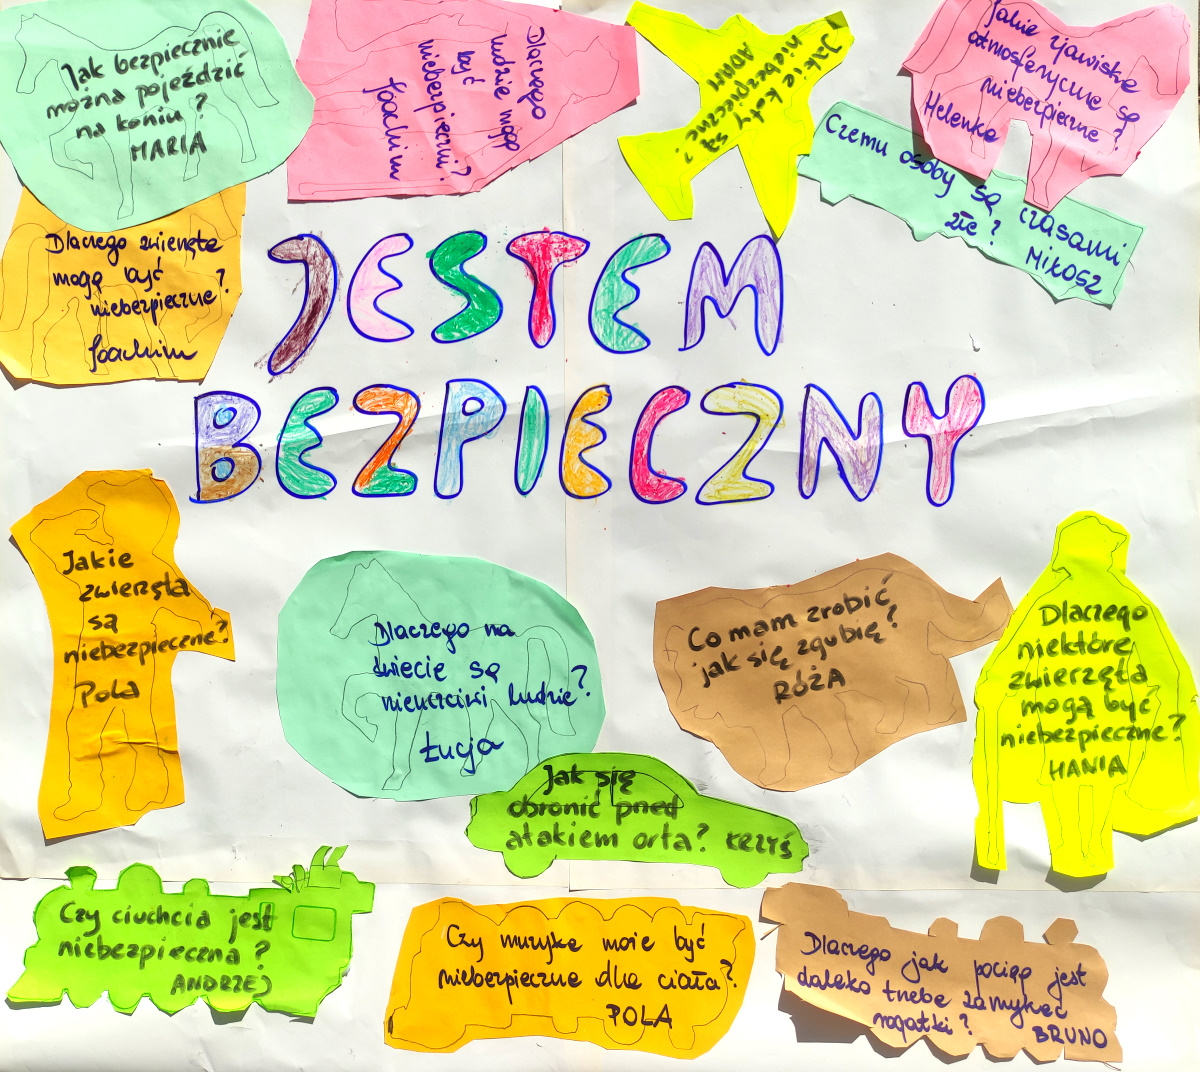 Jak bezpiecznie
można pojeździć
na koniu?
MARIA
Dlaczego
ludzie mogą
być
niebezpieczni?
Joachim
Jakie koty są
niebezpieczne?
ADAM
Jakie zjawiska
atmosferyczne są
niebezpieczne?
Helenka
Czemu osoby są czasami
złe?
MIŁOSZ
Dlaczego zwierzęta
mogą być
niebezpieczne?
Joachim
JESTEM
BEZPIECZNY
Jakie
zwierzęta
są
niebezpieczne?
Pola
Dlaczego na
świecie są
nieuczciwi ludzie?
Łucja
Co mam zrobić
jak się zgubię?
RÓŻA
Dlaczego
niektóre
zwierzęta
mogą być
niebezpieczne?
HANIA
Jak się
obronić przed
atakiem orła? KRZYŚ
Czy ciuchcia jest
niebezpieczna?
ANDRZEJ
Czy muzyka może być
niebezpieczna dla ciała?
POLA
Dlaczego jak pociąg jest
daleko trzeba zamykać
rogatki?
BRUNO